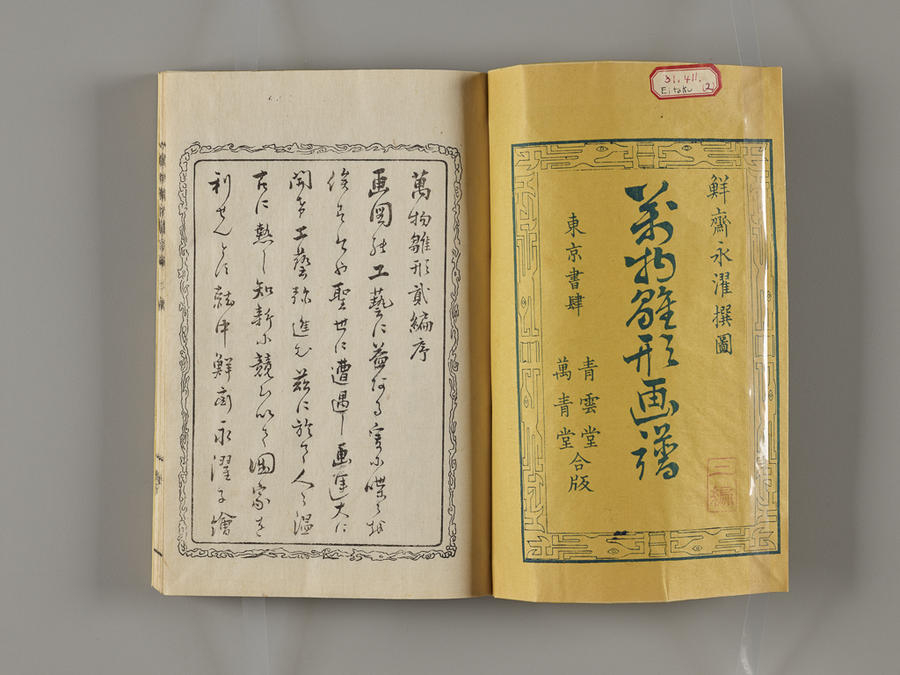 31.411.
Eitaku (2)
鮮齋永濯撰圖
萬物雛形画譜
東京書肆
青雲堂
萬青堂
合版
萬物雛形貳編序
画図 工藝に益ある実に喋々
聖世に遭遇し画運大に
開き工藝弥進 茲に於て人々温
古に熟し知新に競ひ以て国家を
利せんとす就中鮮斎永濯子繪